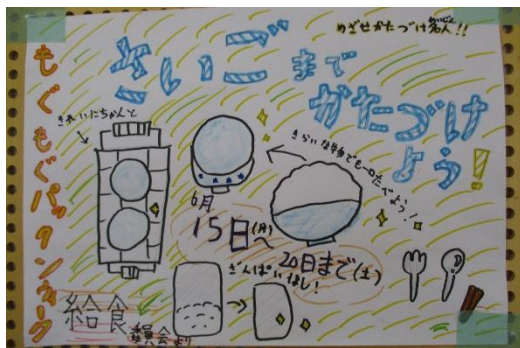 めざせかたづけ名人!!
さいごまで
かたづけ
よう!
もぐもぐパックンウィーク
きれいにちゃんと
きらいな物でも一口たべよう!
6月
15日(月)~
20日まで(土)
ざんぱいなし!
給食委員会より